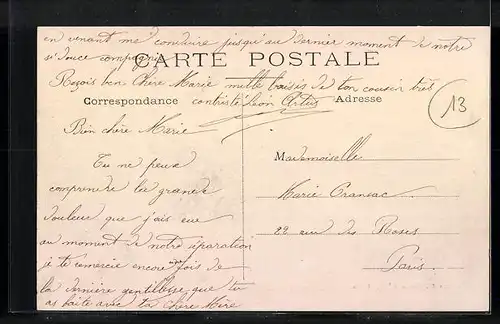 en venant me conduire jusqu'au dernier moment de notre
si douce compagnie
CARTE POSTALE
Reçois bon Chère Marie mille baisis de ton cousin très
Correspondance contristé Léon Artus Adresse
13
Bien chère Marie
Tu ne peux
comprendre la grande
douleur que j'ais eue
au moment de notre séparation
je te remercie encore une fois de
la dernière gentillesse que tu
as faite avec ta chère Mère
Mademoiselle
Marie Cransac
22 rue des Roses
Paris